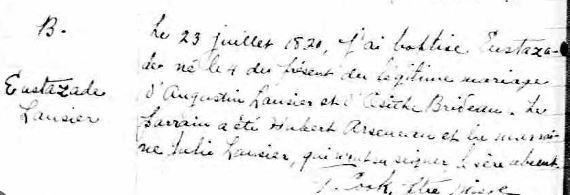 B.
Eustazade
Lansier
Le 23 juillet 1820, J'ai baptisé Eustaza-
de né le 4 du présent du légitime mariage
d'Augustin Lansier et d'Osithe Brideau. Le
parrain a été Hubert Arseneau et la marrai-
ne Julie Lansier, qui n'ont su signer le père absent.
T. Cook, Ptre Miss